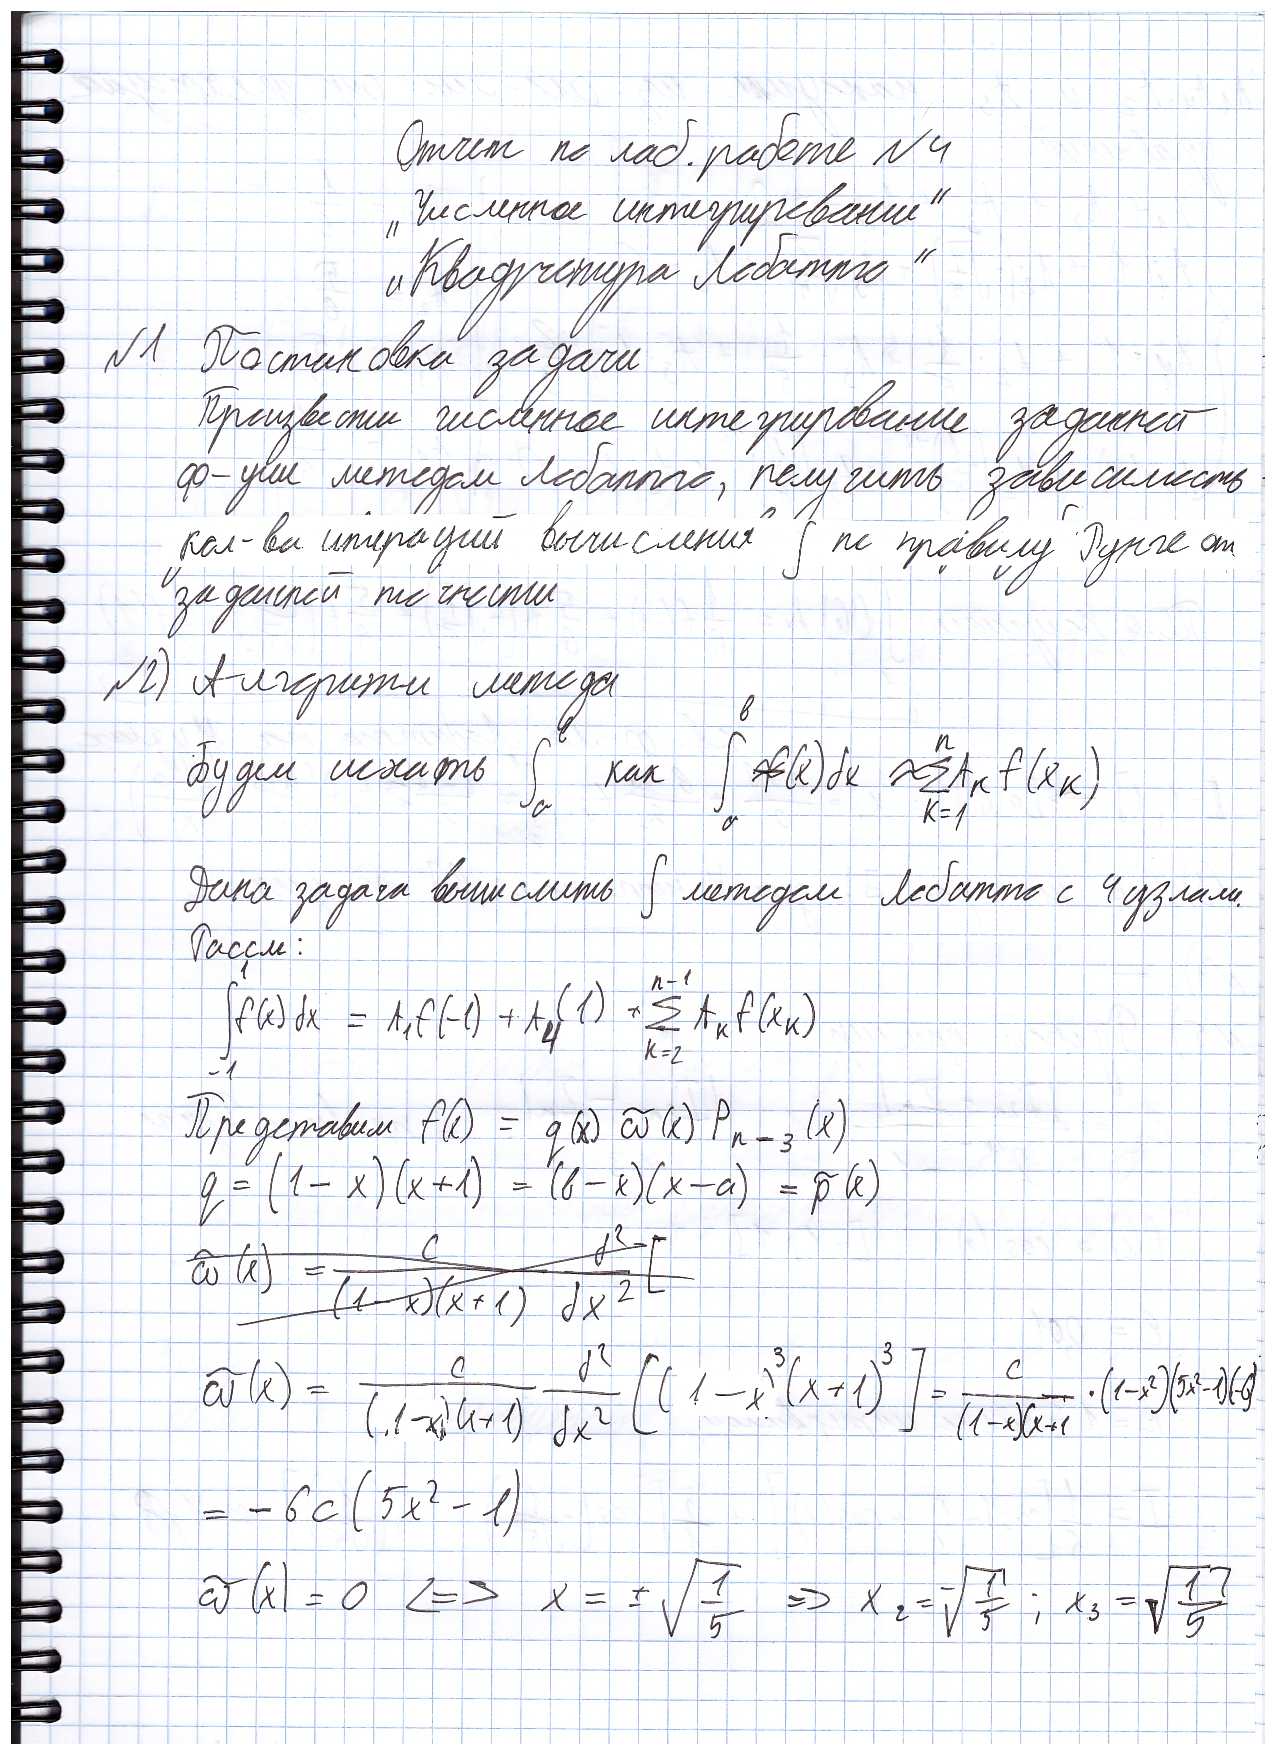 Отчет по лаб. работе №4
„Численное интегрирование“
„Квадратура Лобатто“
№1 Постановка задачи
Произвести численное интегрирование заданной
ф-ции методом Лобатто, получить зависимость
кол-ва итераций вычисления ∫ по правилу Рунге от
заданной точности
№2) Алгоритм метода
Будем искать ∫_a^b как ∫_a^b f(x)dx ≈ ∑_{k=1}^{n} A_k f(x_k)
Дана задача вычислить ∫ методом Лобатто с 4 узлами.
Рассм:
∫_{-1}^{1} f(x)dx = A_1 f(-1) + A_4(1) + ∑_{k=2}^{n-1} A_k f(x_k)
Представим f(x) = q(x) ω̃(x) P_{n-3}(x)
q = (1-x)(x+1) = (b-x)(x-a) = p̃(x)
ω̃(x) = c/((1-x)(x+1)) d²/dx² [
ω̃(x) = c/((1-x)(x+1)) d²/dx² [(1-x)³(x+1)³] = c/((1-x)(x+1) · (1-x²)(5x²-1)(-6)
= -6c(5x²-1)
ω̃(x) = 0 <=> x = ±√(1/5) => x_2 = -√(1/5) ; x_3 = √(1/5)